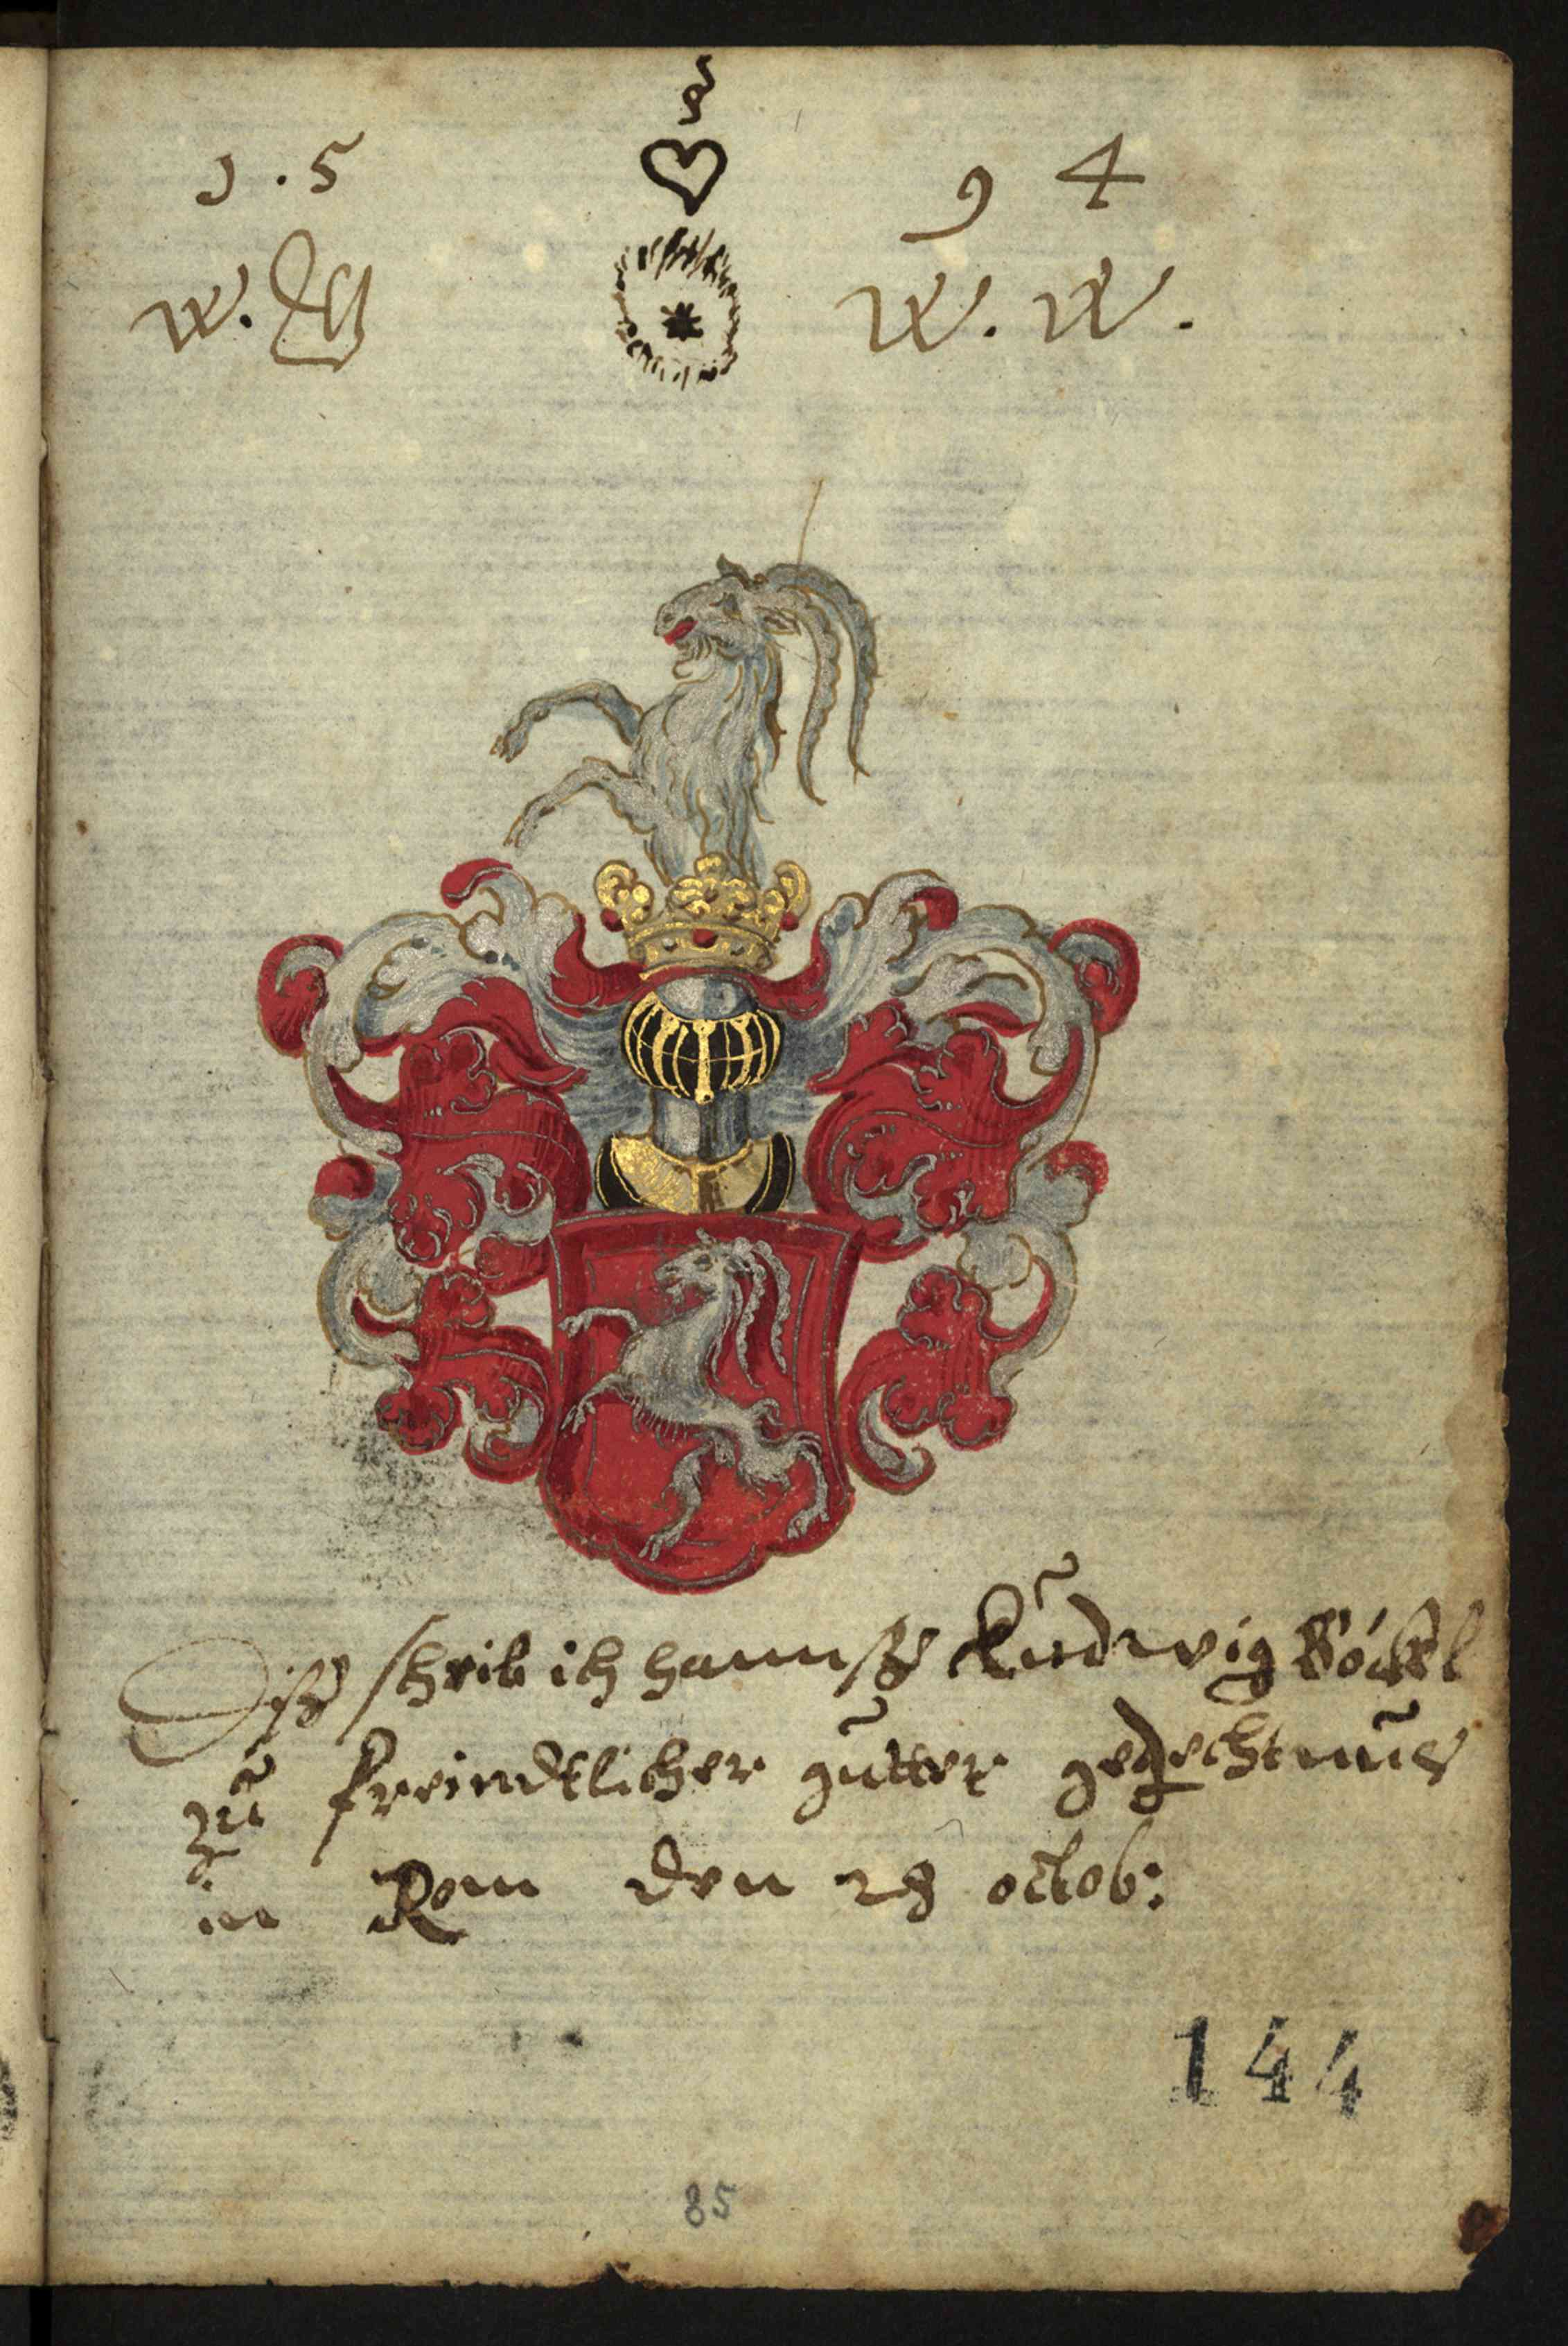 1 . 5 9 4
W. W. W. W.
Diß schreib ich hannß Ludwig Böckhl
zu freindtlicher gutter gedechtnus
in Rom den 28 octob:
144
85